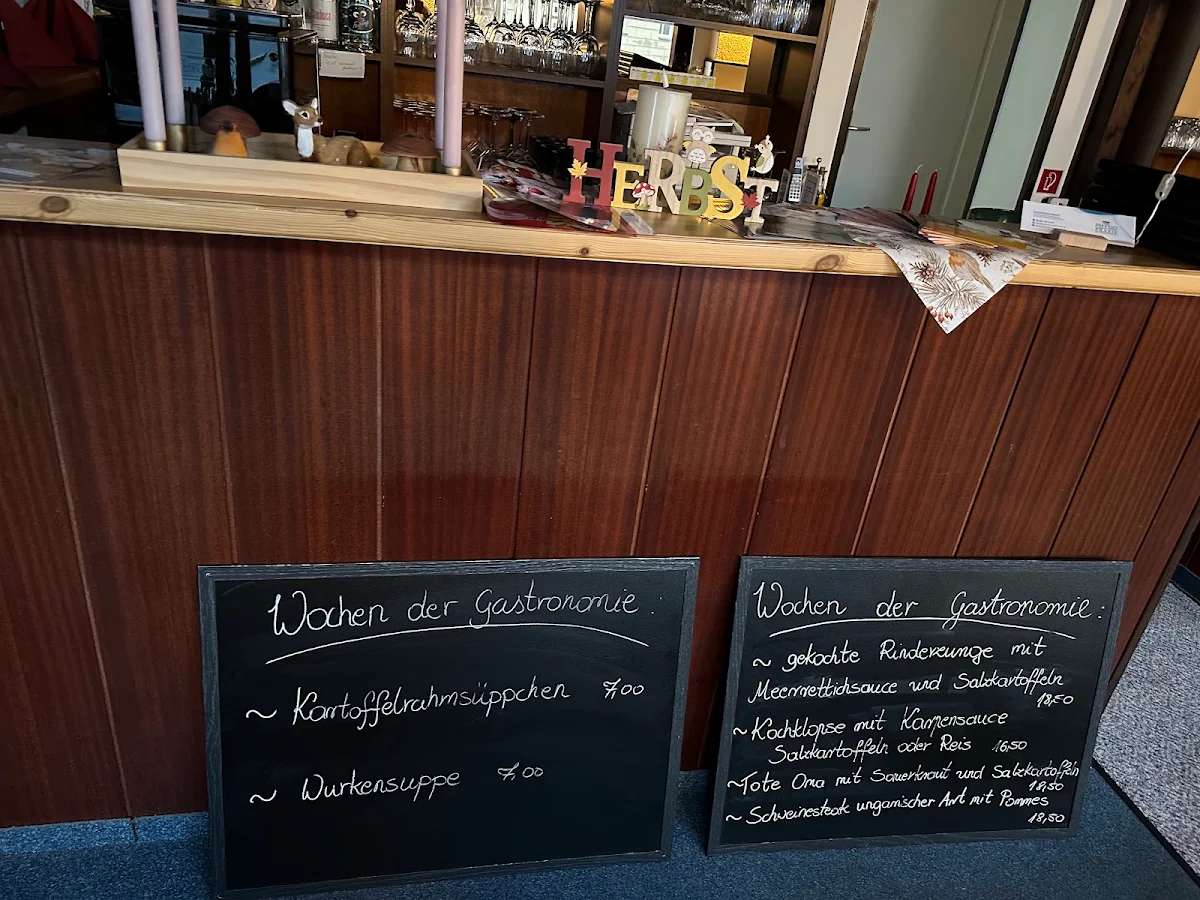 HERBST
Wochen der Gastronomie:
~ Kartoffelrahmsüppchen 7,00
~ Wurkensuppe 7,00
Wochen der Gastronomie:
~ gekochte Rinderzunge mit
Meerrettichsauce und Salzkartoffeln
18,50
~ Kochklopse mit Kapernsauce
Salzkartoffeln oder Reis 16,50
~ Tote Oma mit Sauerkraut und Salzkartoffeln
18,50
~ Schweinesteak ungarischer Art mit Pommes
18,50